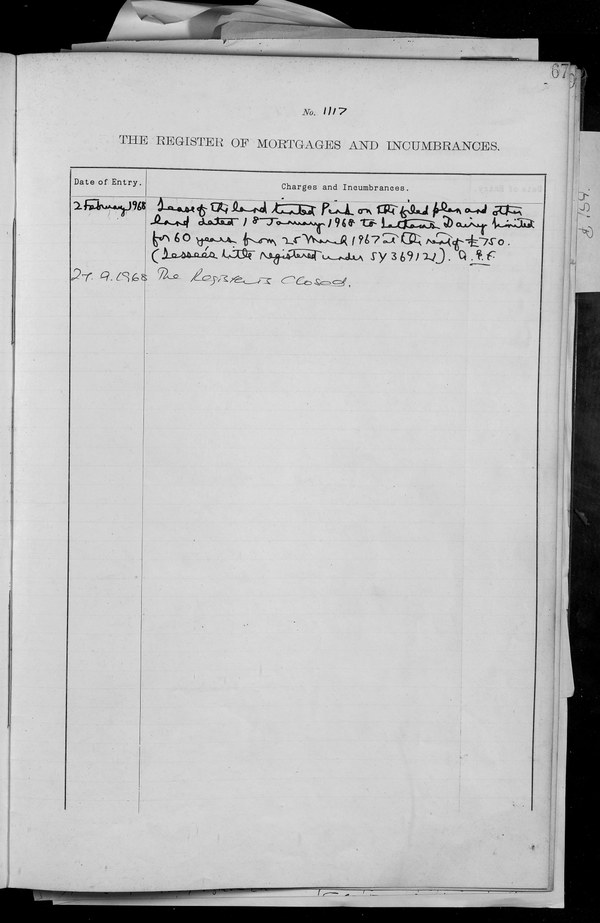 67
No. 1117
THE REGISTER OF MORTGAGES AND INCUMBRANCES.
Date of Entry.
Charges and Incumbrances.
2 February 1968 Lease of the land tinted Pink on the filed plan and other
land dated 18 January 1968 to Dairy Limited
for 60 years from 25 March 1967 at the rent of £750.
(Lessee's title registered under SY 369121).
9.1968 The Register is Closed.